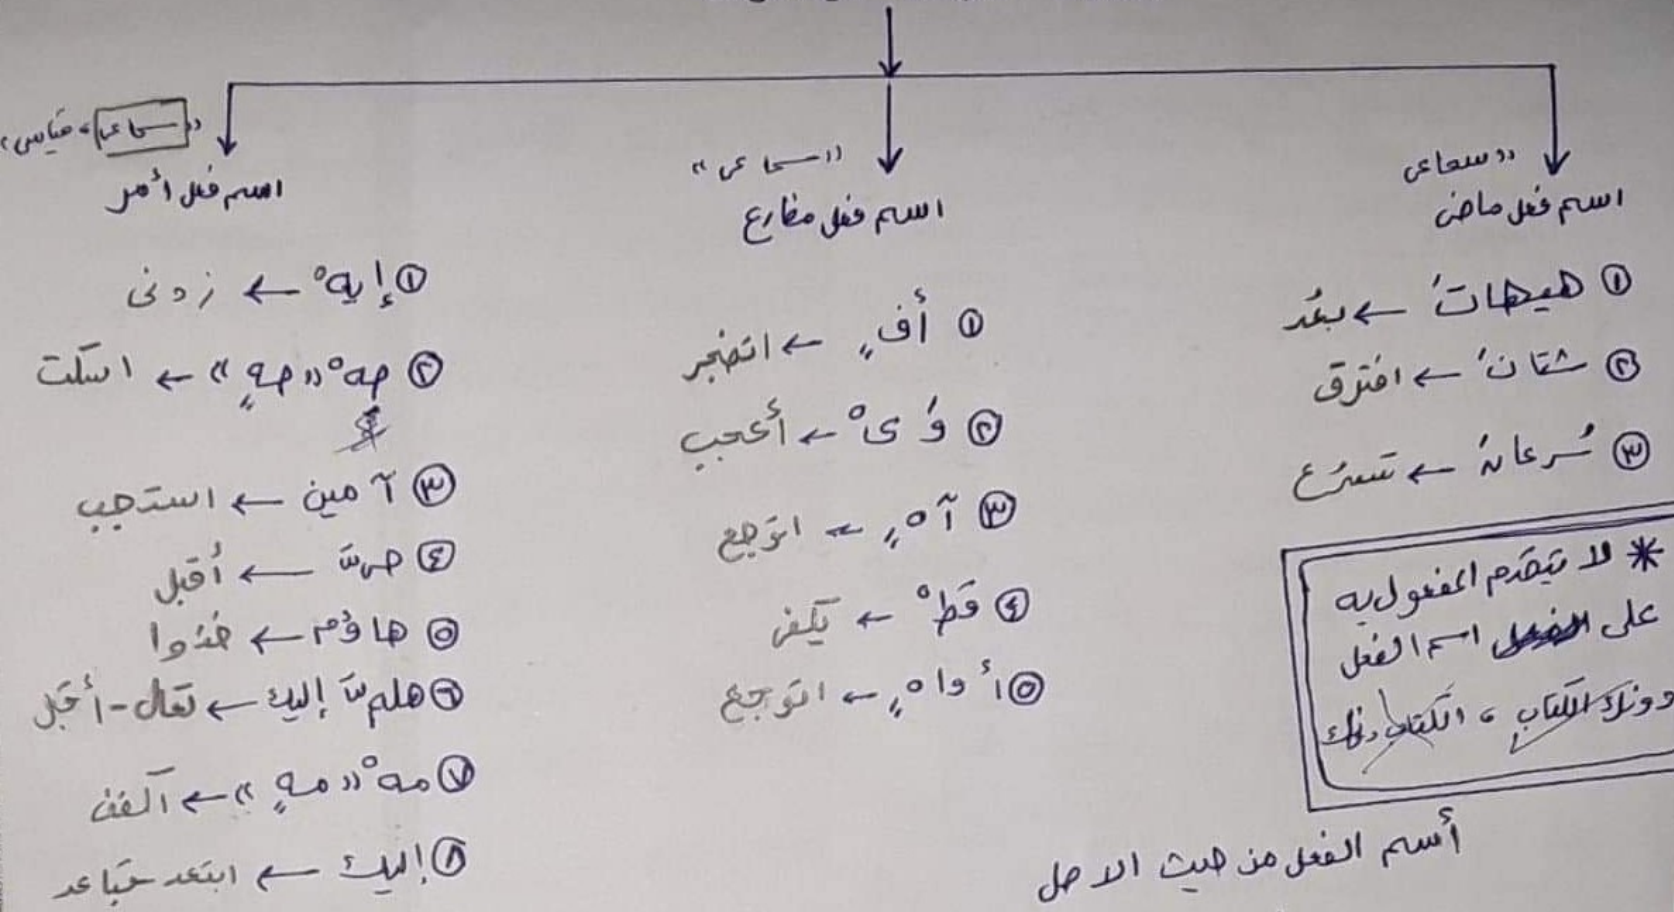 "سماعى
اسم فعل ماضى
① هيهات ← بعُد
② شتان ← افترق
③ سُرعان ← تسرع
* لا تيقدم المفعول به
على اسم الفعل
دونك الكتاب ، الكتاب دونك
"سماعى"
اسم فعل مضارع
① أفٍ ← اتضجر
② وَىْ ← أعجب
③ آهٍ ← اتوجع
④ قطْ ← يكفى
⑤ أواهٍ ← اتوجع
"سماعى ، قياسى"
اسم فعل أمر
① إيهْ ← زدنى
② صهْ "صهٍ" ← اسكت
③ آمين ← استجب
④ حىّ ← أقبل
⑤ هاؤم ← خذوا
⑥ هلمّ إليك ← تعال - أقبل
⑦ مهْ "مهٍ" ← اكفف
⑧ إليك ← ابتعد
أسم الفعل من حيث الاصل